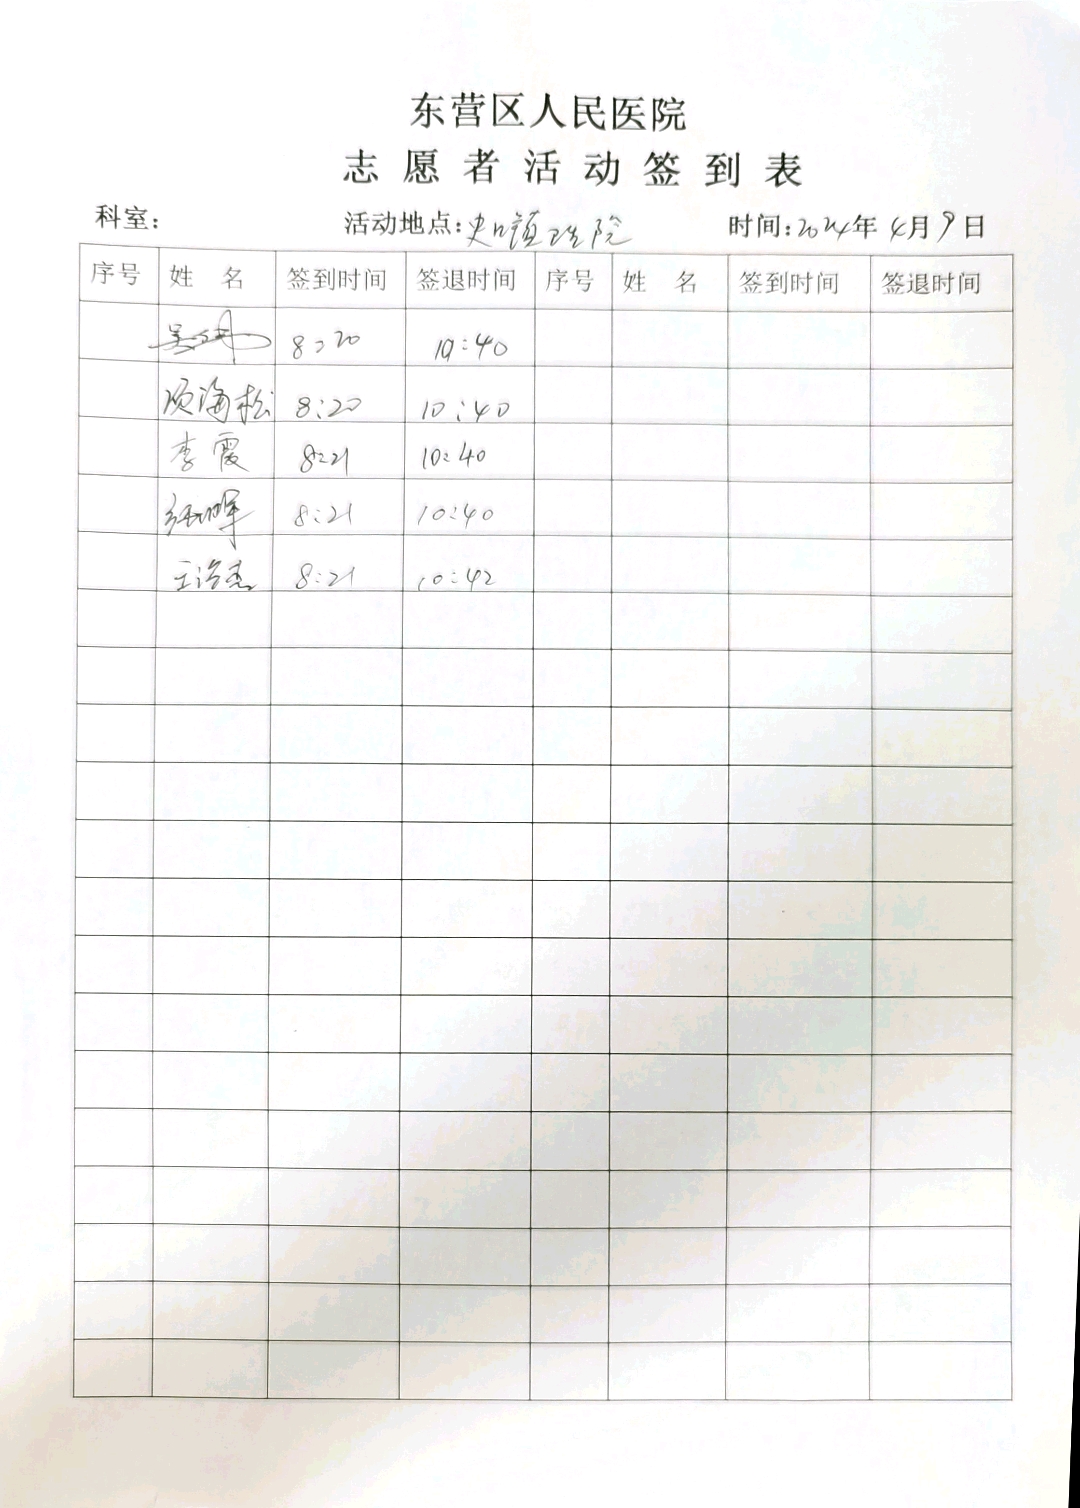 东营区人民医院
志愿者活动签到表
科室： 活动地点：史口镇卫生院 时间：2024年4月9日
序号 姓 名 签到时间 签退时间 序号 姓 名 签到时间 签退时间
8:20 10:40
项海松 8:20 10:40
李霞 8:21 10:40
8:21 10:40
王浩杰 8:21 10:42